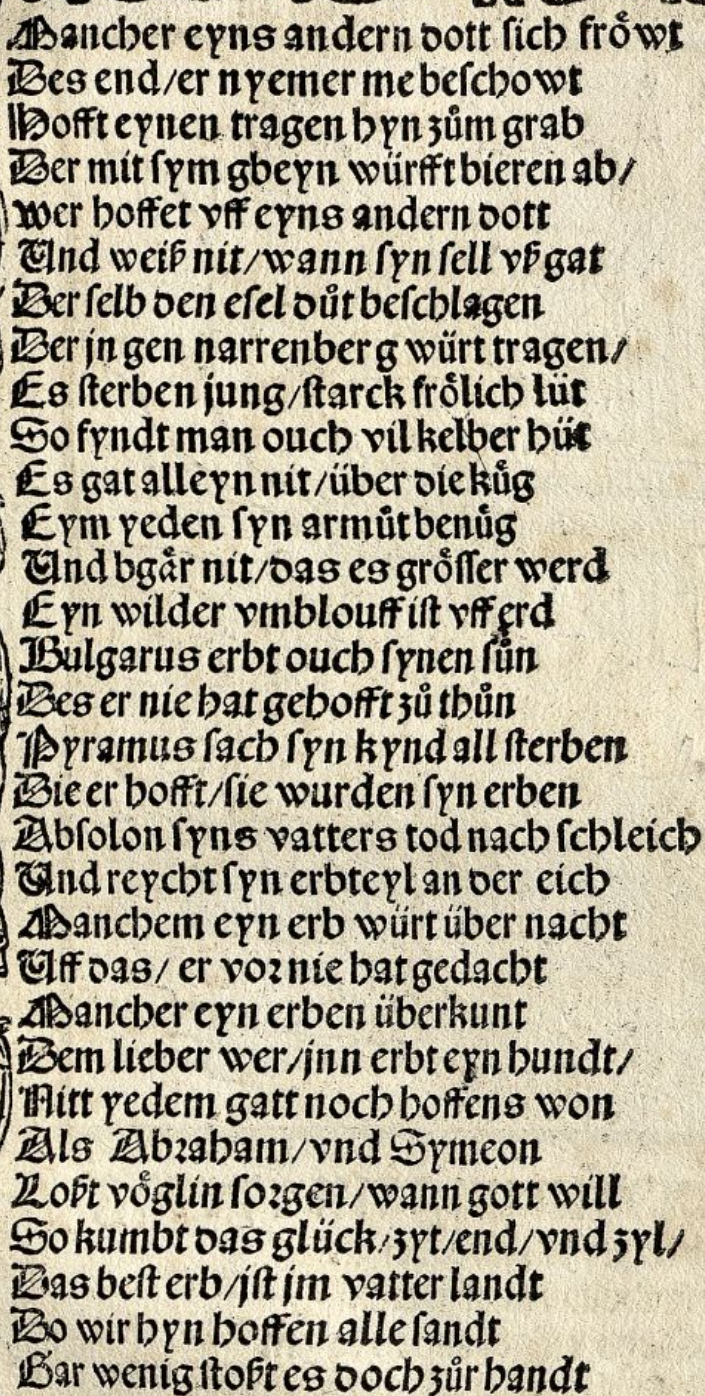 Mancher eyns andern dott sich frőwt
Des end/er nyemer me beschowt
Hofft eynen tragen hyn zům grab
Der mit sym gbeyn würfft bieren ab/
Wer hoffet vff eyns andern dott
Und weiß nit/wann syn sell vß gat
Der selb den esel důt beschlagen
Der jn gen narrenberg würt tragen/
Es sterben jung/starck frőlich lüt
So fyndt man ouch vil kelber hüt
Es gat alleyn nit/über die kůg
Eym yeden syn armůt benůg
Und bgår nit/das es grősser werd
Eyn wilder vmblouff ist vff erd
Bulgarus erbt ouch synen sůn
Des er nie hat gehofft zů thůn
Pyramus sach syn kynd all sterben
Die er hofft/sie wurden syn erben
Absolon syns vatters tod nach schleich
Und reycht syn erbteyl an der eich
Manchem eyn erb würt über nacht
Uff das/ er vor nie hat gedacht
Mancher eyn erben überkunt
Dem lieber wer/jnn erbt eyn hundt/
Nitt yedem gatt noch hoffens won
Als Abraham/vnd Symeon
Loßt vőglin sorgen/wann gott will
So kumbt das glück/zyt/end/vnd zyl/
Das best erb/jst jm vatter landt
Do wir hyn hoffen alle sandt
Gar wenig stoßt es doch zůr handt